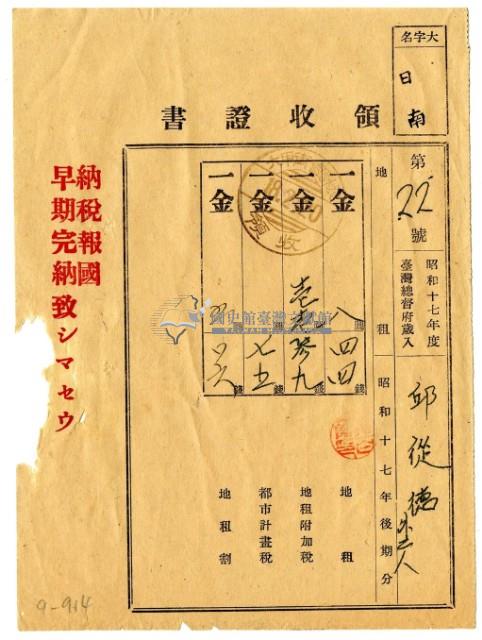 大字名
日南
領收證書
第22號
昭和十七年度
臺灣總督府歲入
邱從德
地租
昭和十七年後期分
一金
八圓四四錢
地租
一金
地租附加稅
一金
七五錢
都市計畫稅
一金
地租割
納稅報國
早期完納致シマセウ
國史館臺灣文獻館
TAIWAN HISTORICA
9-914